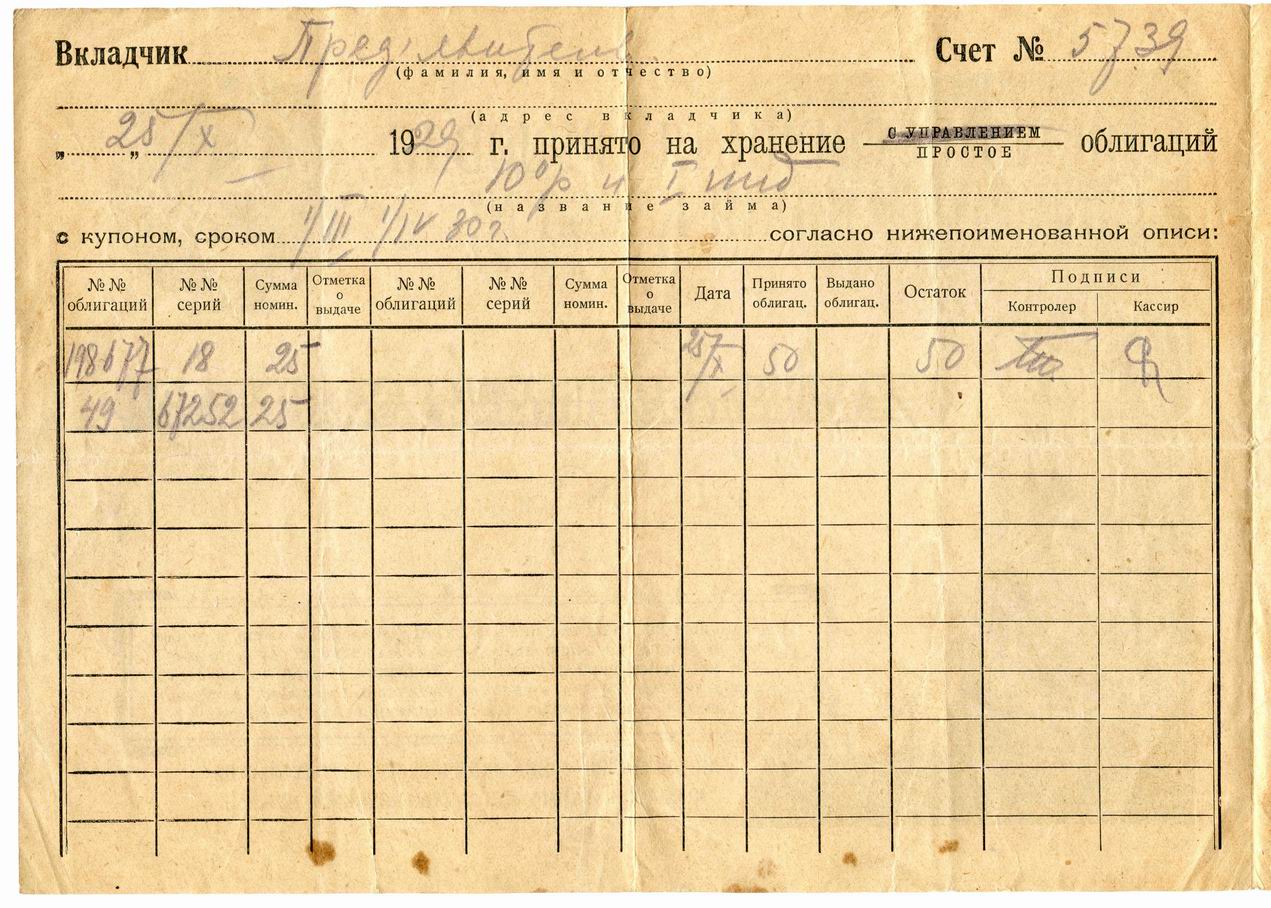 Вкладчик Пред'явитель Счет № 5739
(фамилия, имя и отчество)
(адрес вкладчика)
„ 25/X " 1929 г. принято на хранение С УПРАВЛЕНИЕМ облигаций
ПРОСТОЕ
10% и I инд
(название займа)
с купоном, сроком 1/III 1/IV 30 г. согласно нижепоименованной описи:
№№ облигаций №№ серий Сумма номин. Отметка о выдаче №№ облигаций №№ серий Сумма номин. Отметка о выдаче Дата Принято облигац. Выдано облигац. Остаток Подписи
Контролер Кассир
198677 18 25 25/X 50 50
49 67252 25